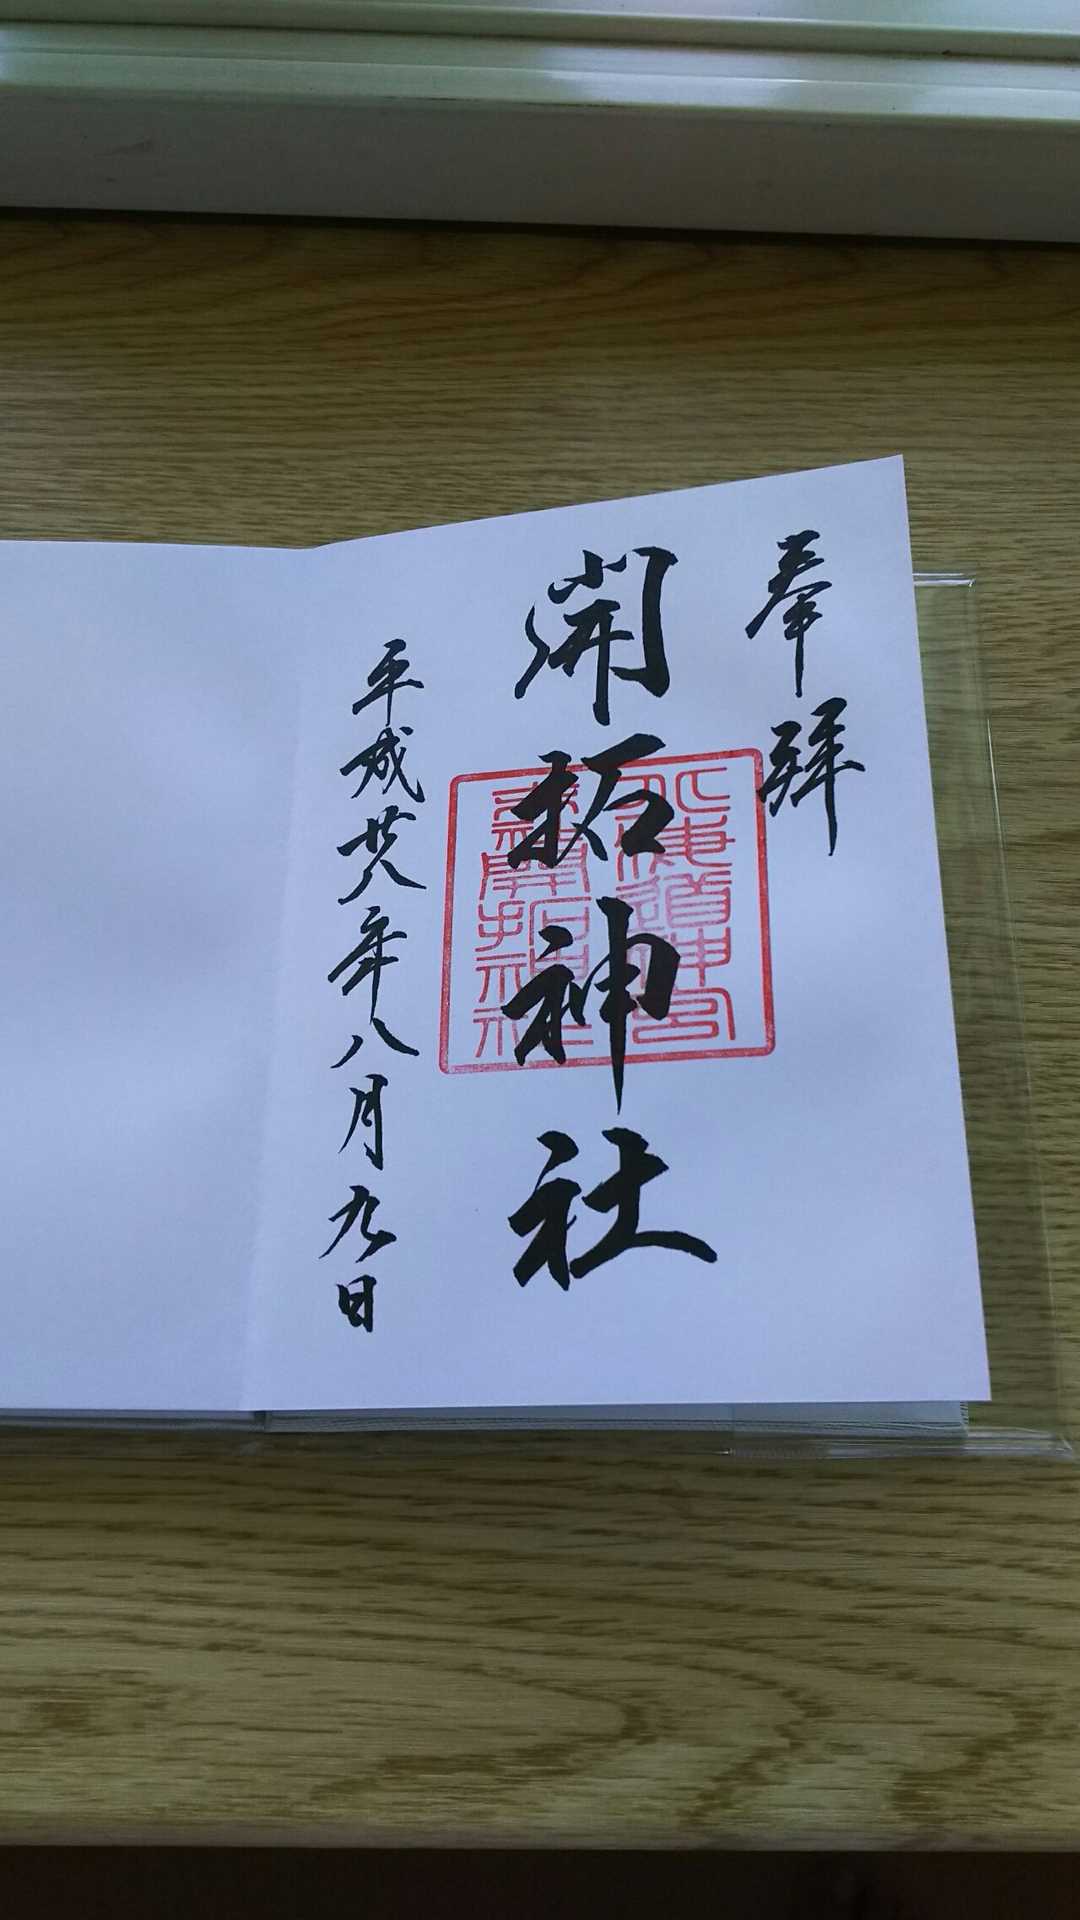 奉拜
開拓神社
北海道神宮
末社開拓神社
平成廿八年八月九日